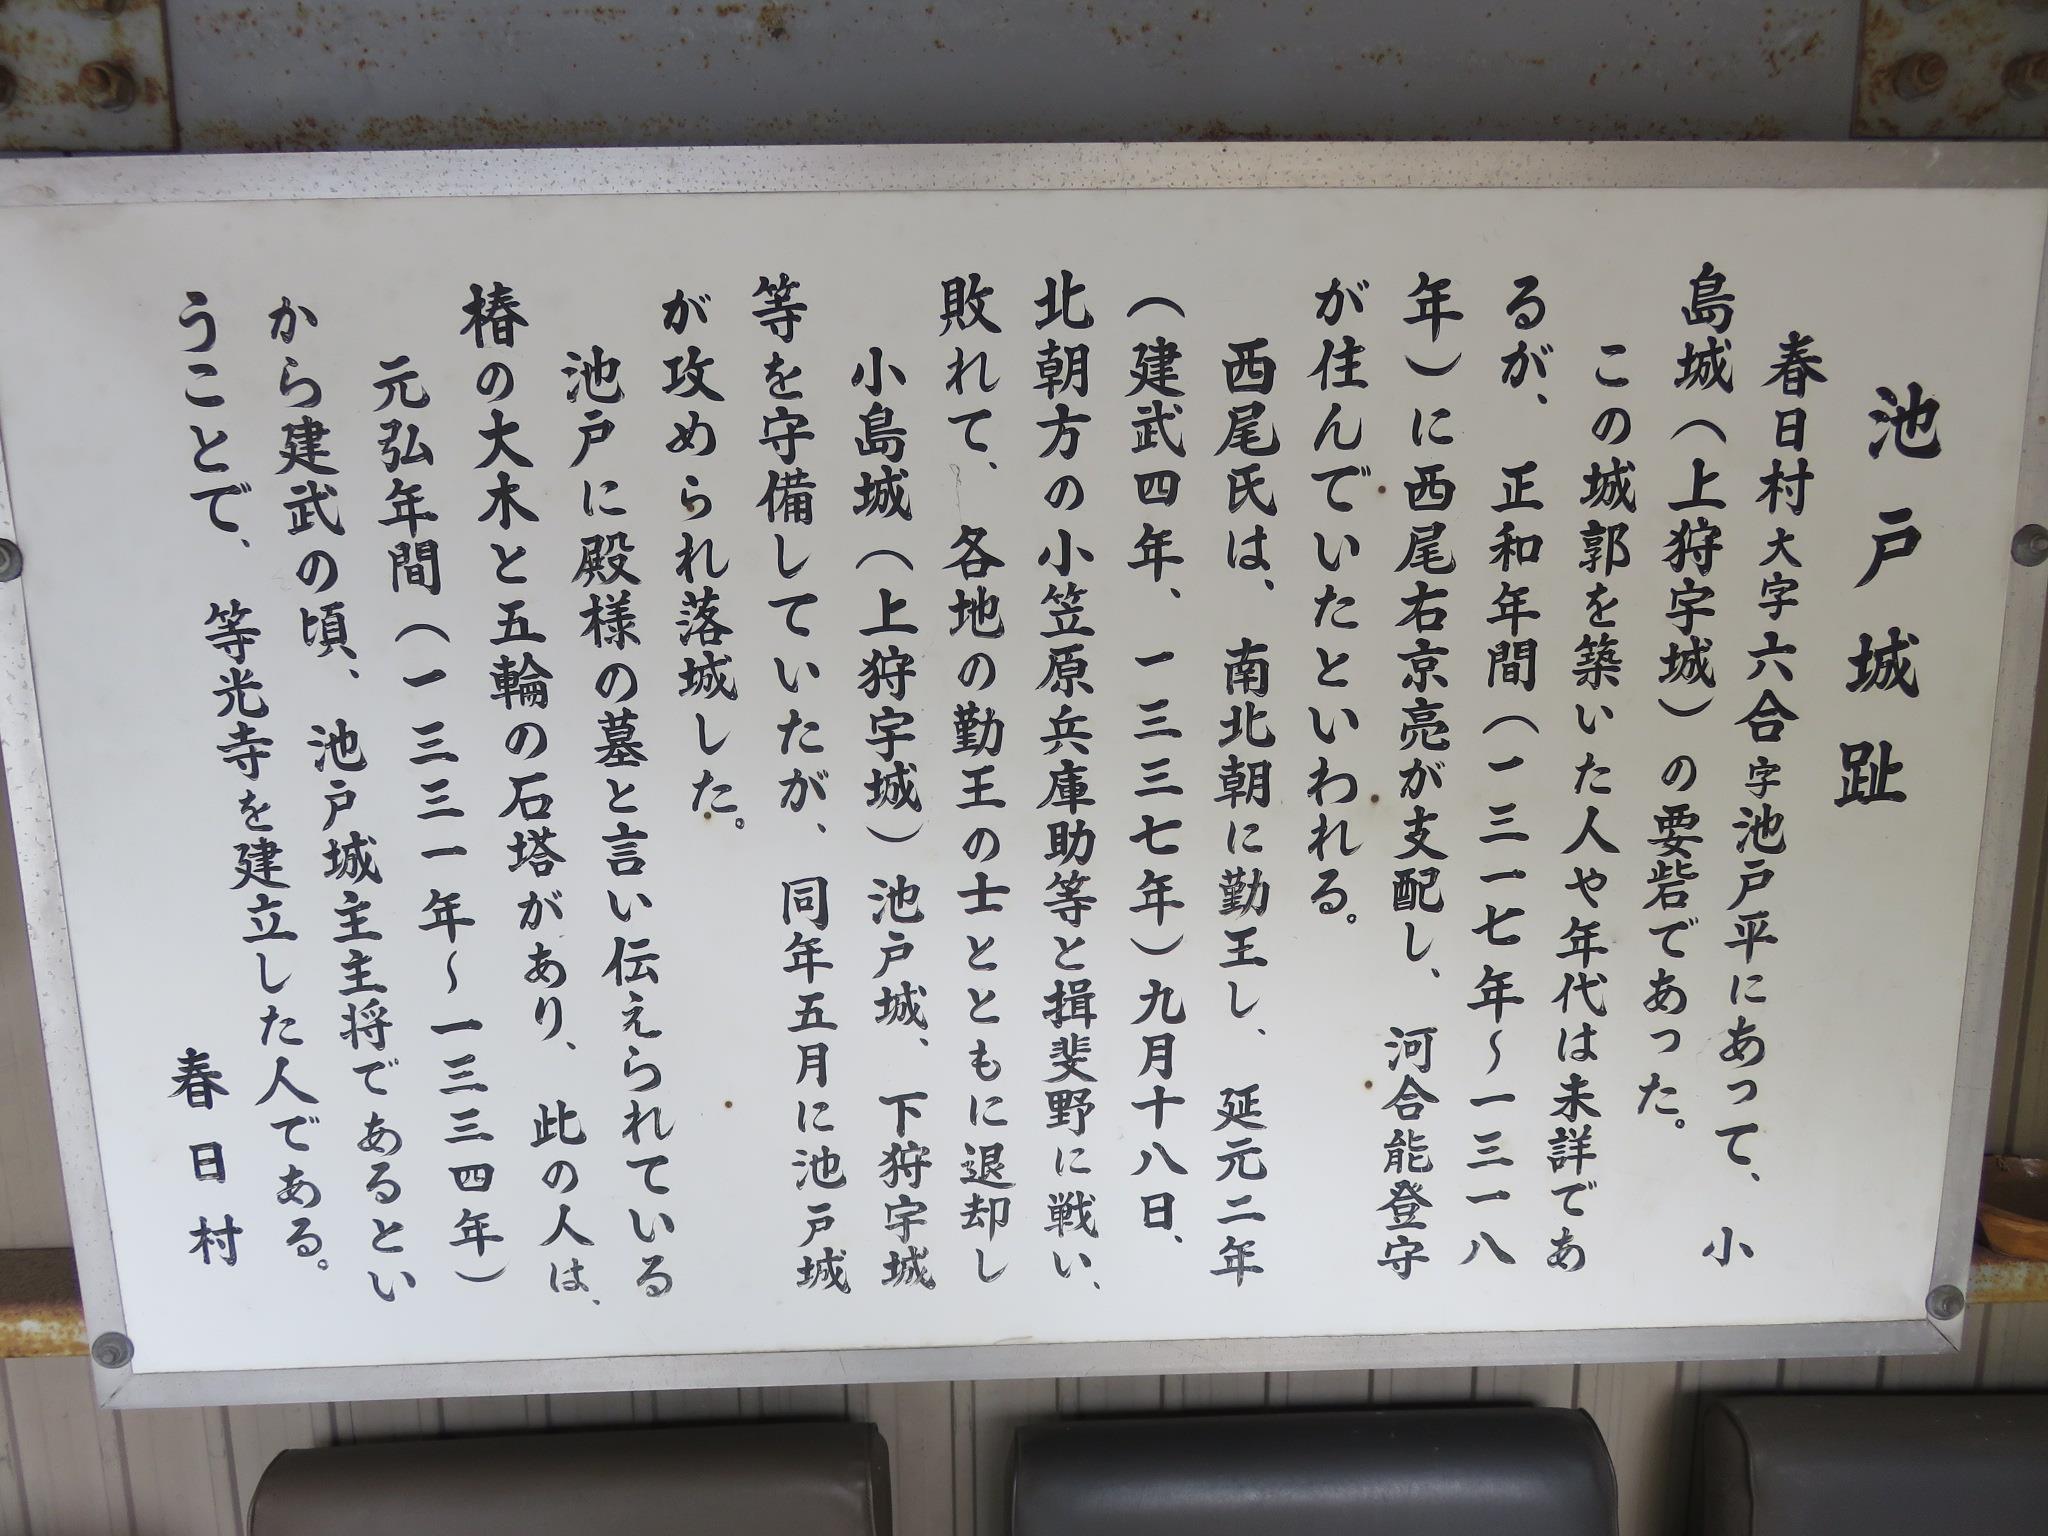 池戸城趾
春日村大字六合字池戸平にあって、小
島城（上狩宇城）の要砦であった。
この城郭を築いた人や年代は未詳であ
るが、正和年間（一三一七年～一三一八
年）に西尾右京亮が支配し、河合能登守
が住んでいたといわれる。
西尾氏は、南北朝に勤王し、延元二年
（建武四年、一三三七年）九月十八日、
北朝方の小笠原兵庫助等と揖斐野に戦い、
敗れて、各地の勤王の士とともに退却し
小島城（上狩宇城）池戸城、下狩宇城
等を守備していたが、同年五月に池戸城
が攻められ落城した。
池戸に殿様の墓と言い伝えられている
椿の大木と五輪の石塔があり、此の人は、
元弘年間（一三三一年～一三三四年）
から建武の頃、池戸城主主将であるとい
うことで、等光寺を建立した人である。
春日村